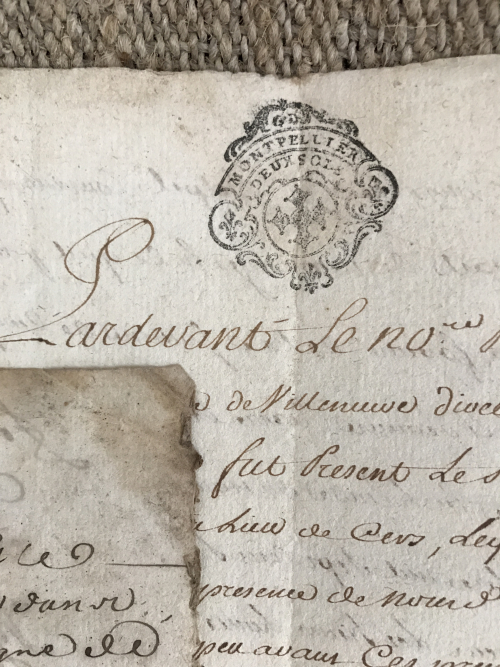 G. D.
MONTPELLIER
DEUX SOLS
Pardevant Le no.re
de Villenuve dioce
fut Present Le s
Lieu de Cers, Leq
presence de nous
peu avant Ces
gne de